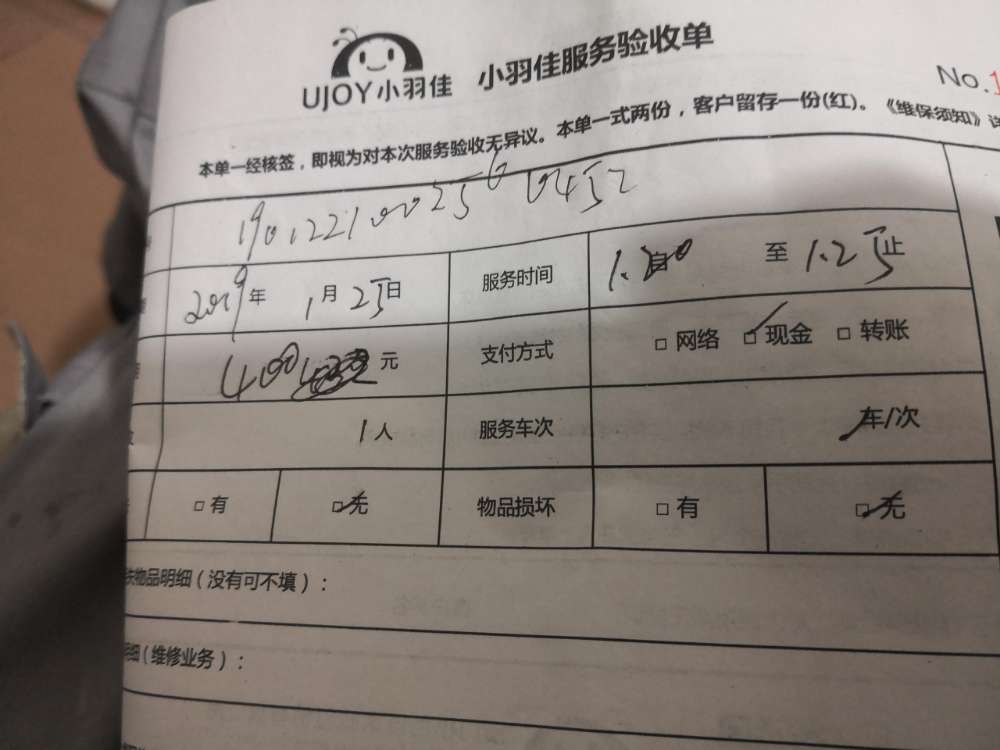 UJOY小羽佳 小羽佳服务验收单
No.1
本单一经核签，即视为对本次服务验收无异议。本单一式两份，客户留存一份(红)。《维保须知》详
190122100256 0452
2019年 1月25日 服务时间 1.20 至 1.25止
400 元 支付方式 □ 网络 □ 现金 □ 转账
1人 服务车次 车/次
□ 有 □ 无 物品损坏 □ 有 □ 无
物品明细（没有可不填）：
明细（维修业务）：